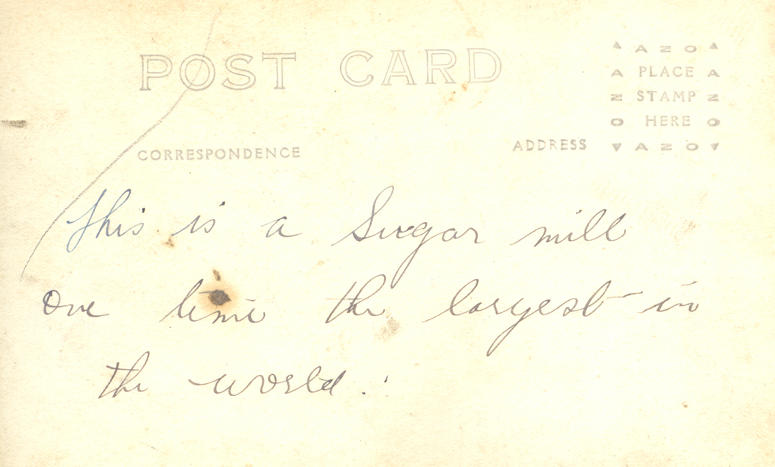 POST CARD
AZO
A PLACE A
Z STAMP Z
O HERE O
AZO
CORRESPONDENCE
ADDRESS
This is a Sugar mill
One time the largest in
the world.